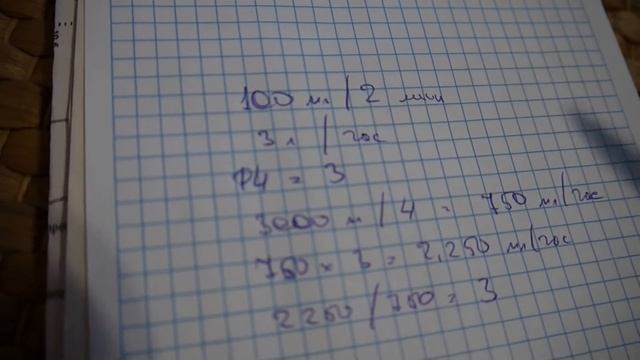 100 мл / 2 мин
3 л / час
P4 = 3
3000 м / 4 = 750 мл/час
750 × 3 = 2,250 мл/час
2250 / 750 = 3